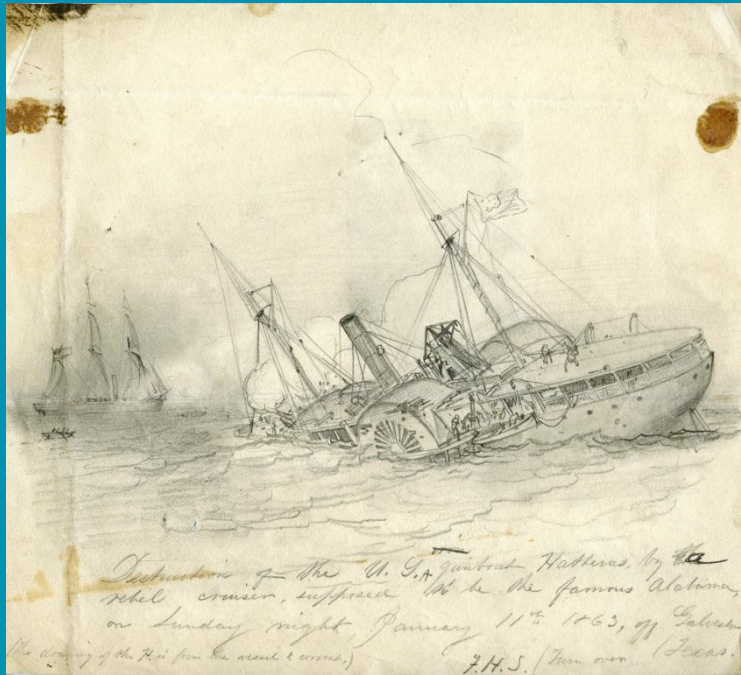 Destruction of the U. S. gunboat Hatteras, by a
rebel cruiser, supposed to be the famous Alabama,
on Sunday night, January 11th 1863, off Galveston
(the drawing of the H. is from the vessel & correct.) F.H.S. (Turn over Texas.